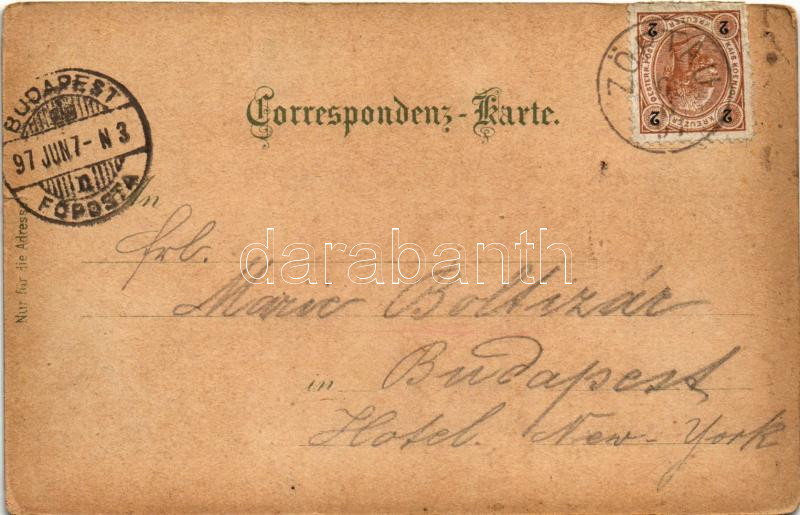 Correspondenz-Karte.
BUDAPEST
97 JUN 7 - N 3
n
FŐPOSTA
2 2
KREUZER
KREUZER
2 2
An
Frl.
Marie Boltizár
in Budapest
Hotel. New-York
Nur für die Adresse
darabanth